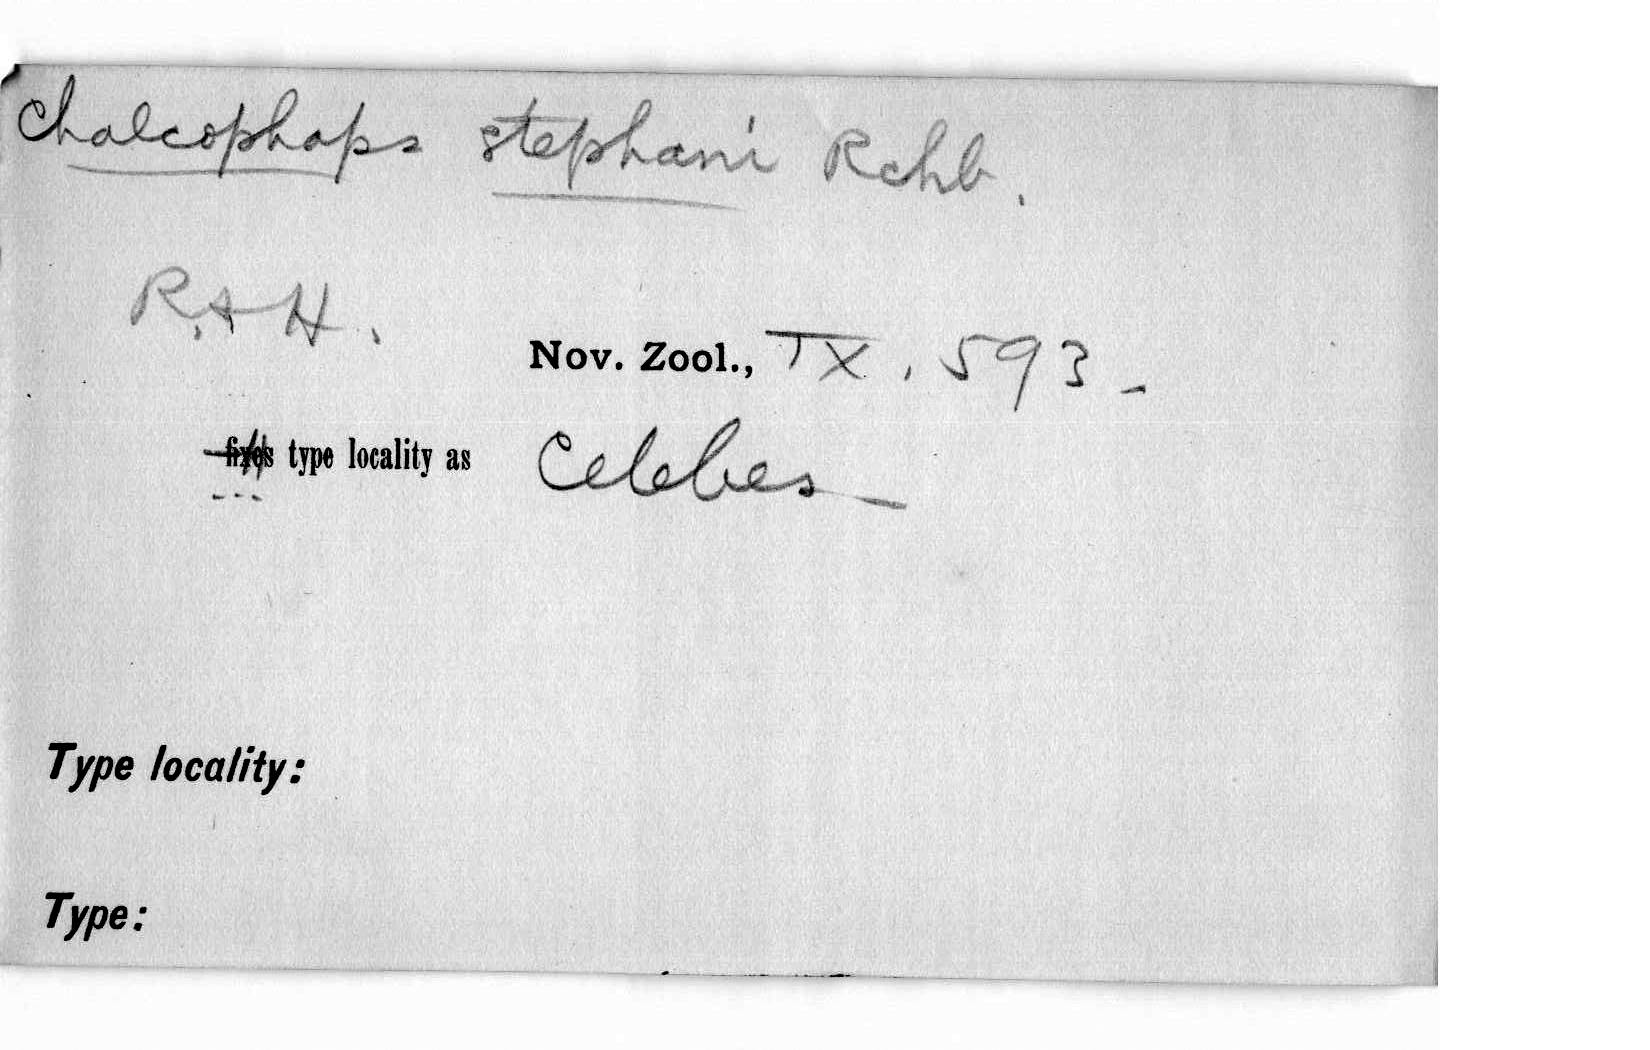 Chalcophaps stephani Rchb.
R. & H.
Nov. Zool., IX, 593 -
fixes type locality as Celebes -
Type locality:
Type: